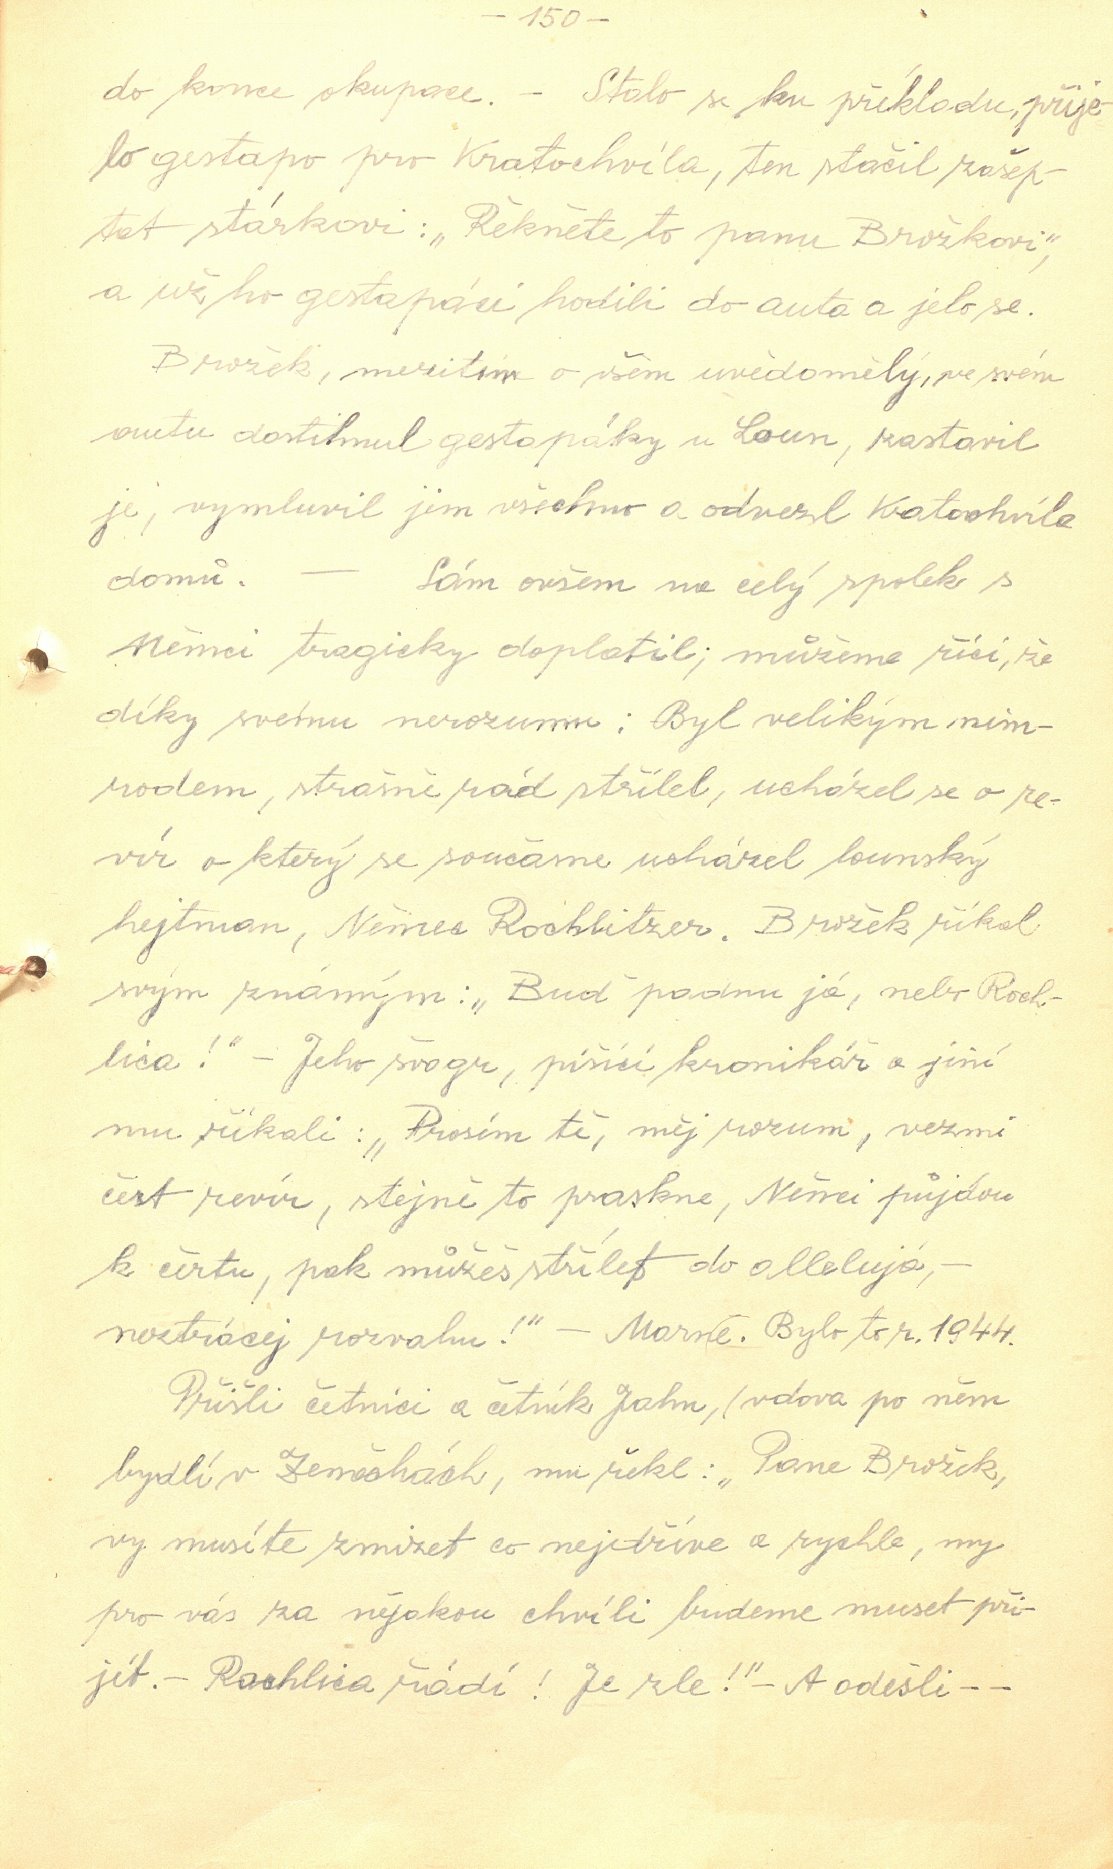 - 150 -
do konce okupace. - Stalo se ku příkladu, přije-
lo gestapo pro Kratochvíla, ten stačil zašep-
tat stárkovi: „Řekněte to panu Brožkovi“,
a už ho gestapáci hodili do auta a jelo se.
Brožek, mezitím o všem uvědomělý, ve svém
autu dostihnul gestapáky u Loun, zastavil
je, vymluvil jim všechno a odvezl Kratochvíla
domů. — Sám ovšem na celý spolek s
Němci tragicky doplatil; můžeme říci, že
díky svému nerozumu: Byl velikým nim-
rodem, strašně rád střílel, ucházel se o re-
vír o který se současne ucházel lounský
hejtman, Němec Rochlitzer. Brožek říkal
svým známým: „Buď padnu já, nebo Roch-
lica!“ - Jeho švagr, píšící kronikář a jiní
mu říkali: „Prosím tě, měj rozum, vezmi
čert revír, stejně to praskne, Němci půjdou
k čertu, pak můžeš střílet do allelujá, -
neztrácej rozvahu!“ - Marně. Bylo to r. 1944.
Přišli četníci a četník Jahn, (vdova po něm
bydlí v Zeměchách, mu řekl: „Pane Brožek,
vy musíte zmizet co nejdříve a rychle, my
pro vás za nějakou chvíli budeme muset při-
jít. - Rochlica řádí! Je zle!“ - A odešli - -